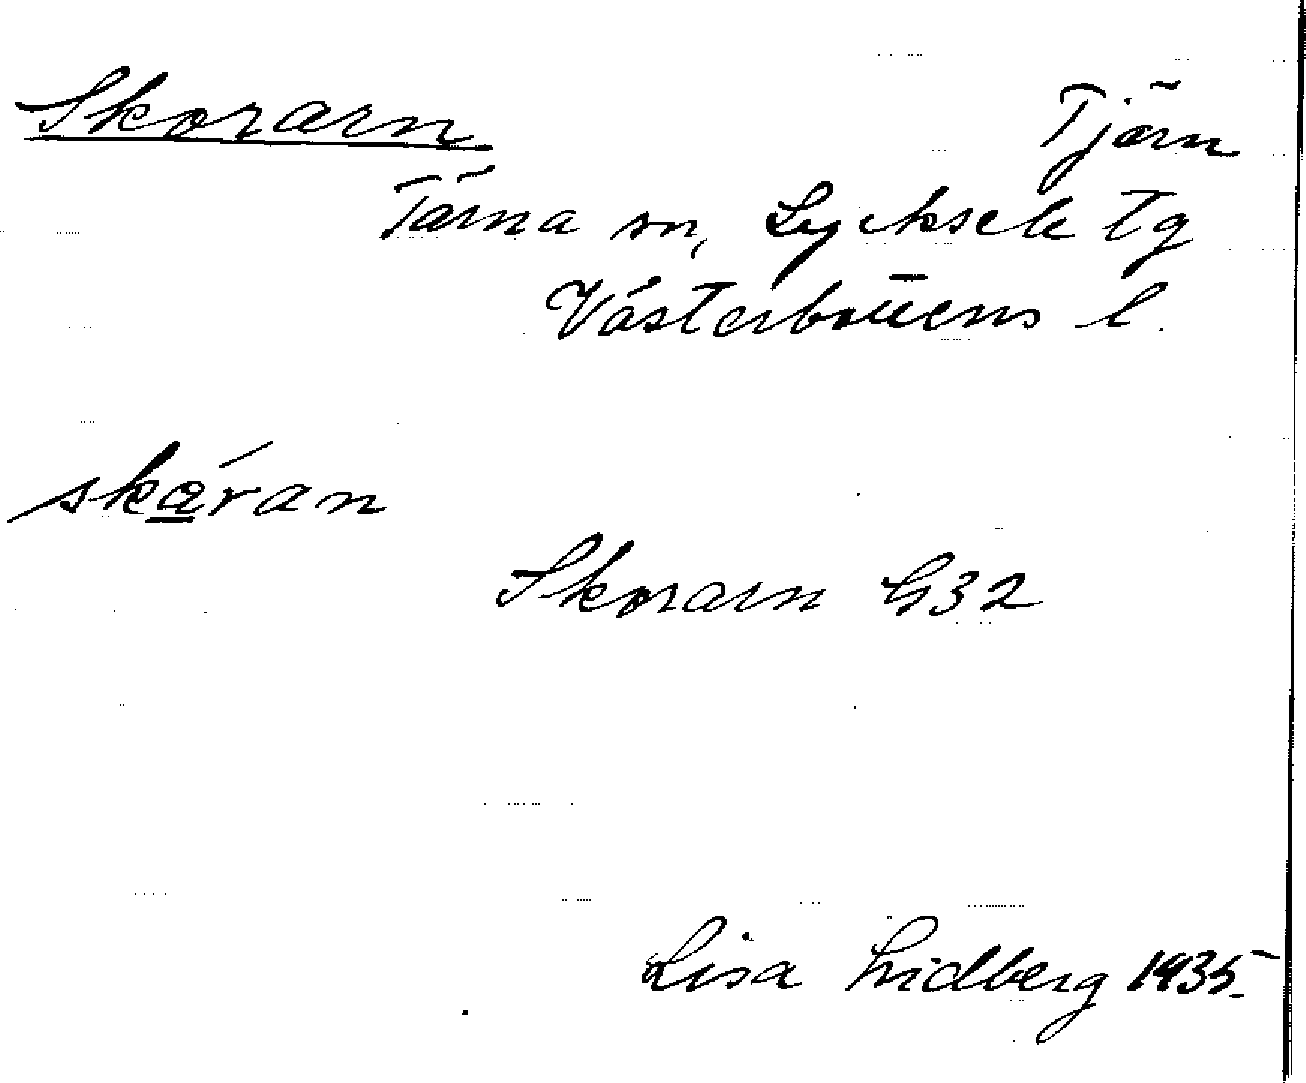 Skorarn Tjärn
Tärna sn, Lycksele tg
Västerbottens l.
skɑ̲́ran
Skorarn G32
Lisa Lidberg 1935